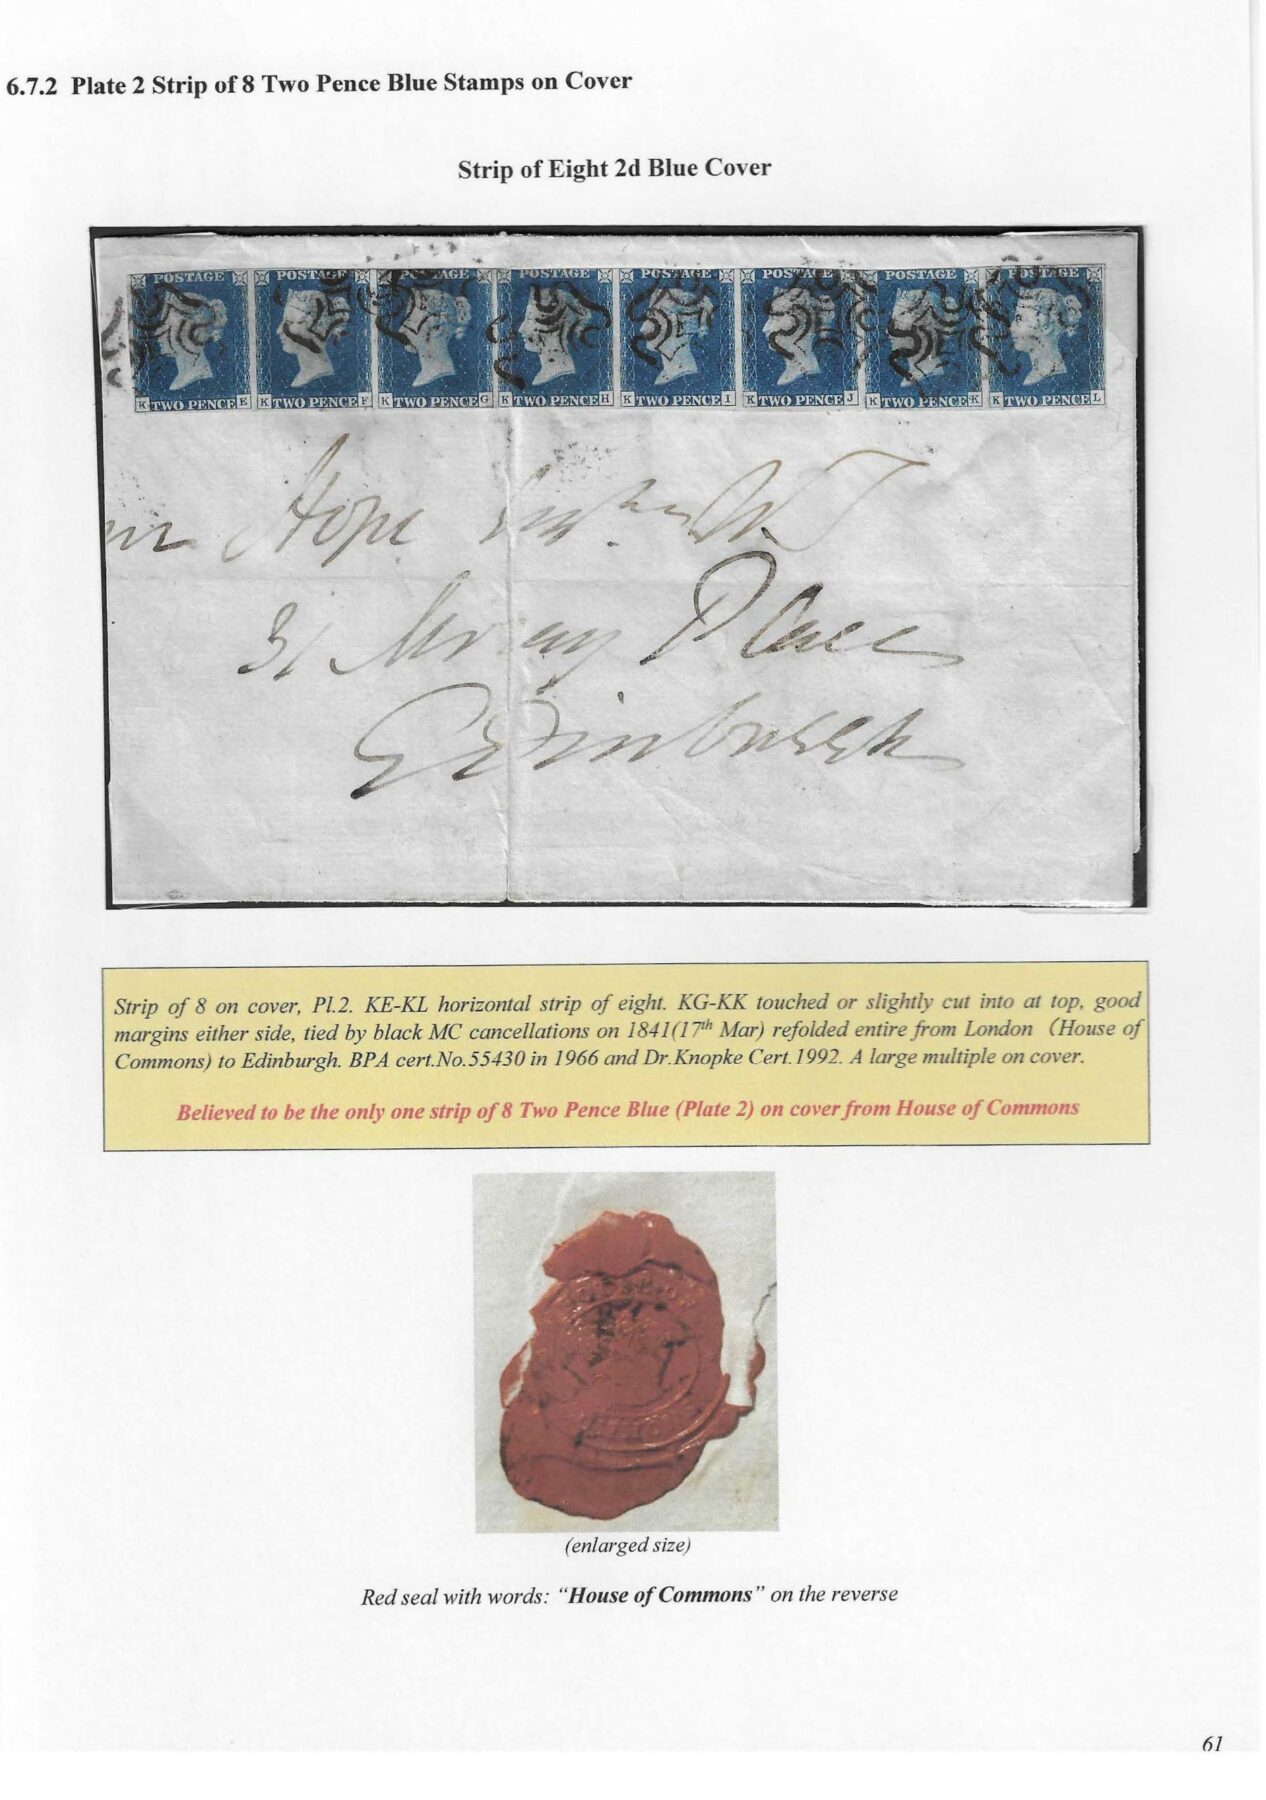 6.7.2 Plate 2 Strip of 8 Two Pence Blue Stamps on Cover
Strip of Eight 2d Blue Cover
POSTAGE POSTAGE POSTAGE POSTAGE POSTAGE POSTAGE POSTAGE POSTAGE
K TWO PENCE E K TWO PENCE F K TWO PENCE G K TWO PENCE H K TWO PENCE I K TWO PENCE J K TWO PENCE K K TWO PENCE L
Hope
31 Moray Place
Edinburgh
Strip of 8 on cover, Pl.2. KE-KL horizontal strip of eight. KG-KK touched or slightly cut into at top, good
margins either side, tied by black MC cancellations on 1841(17th Mar) refolded entire from London (House of
Commons) to Edinburgh. BPA cert.No.55430 in 1966 and Dr.Knopke Cert.1992. A large multiple on cover.
Believed to be the only one strip of 8 Two Pence Blue (Plate 2) on cover from House of Commons
(enlarged size)
Red seal with words: “House of Commons” on the reverse
61